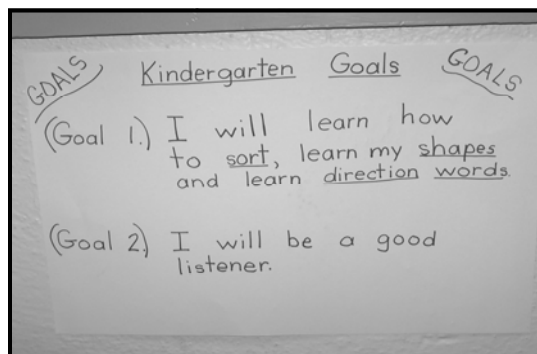 GOALS Kindergarten Goals GOALS
(Goal 1.) I will learn how
to sort, learn my shapes
and learn direction words.
(Goal 2.) I will be a good
listener.